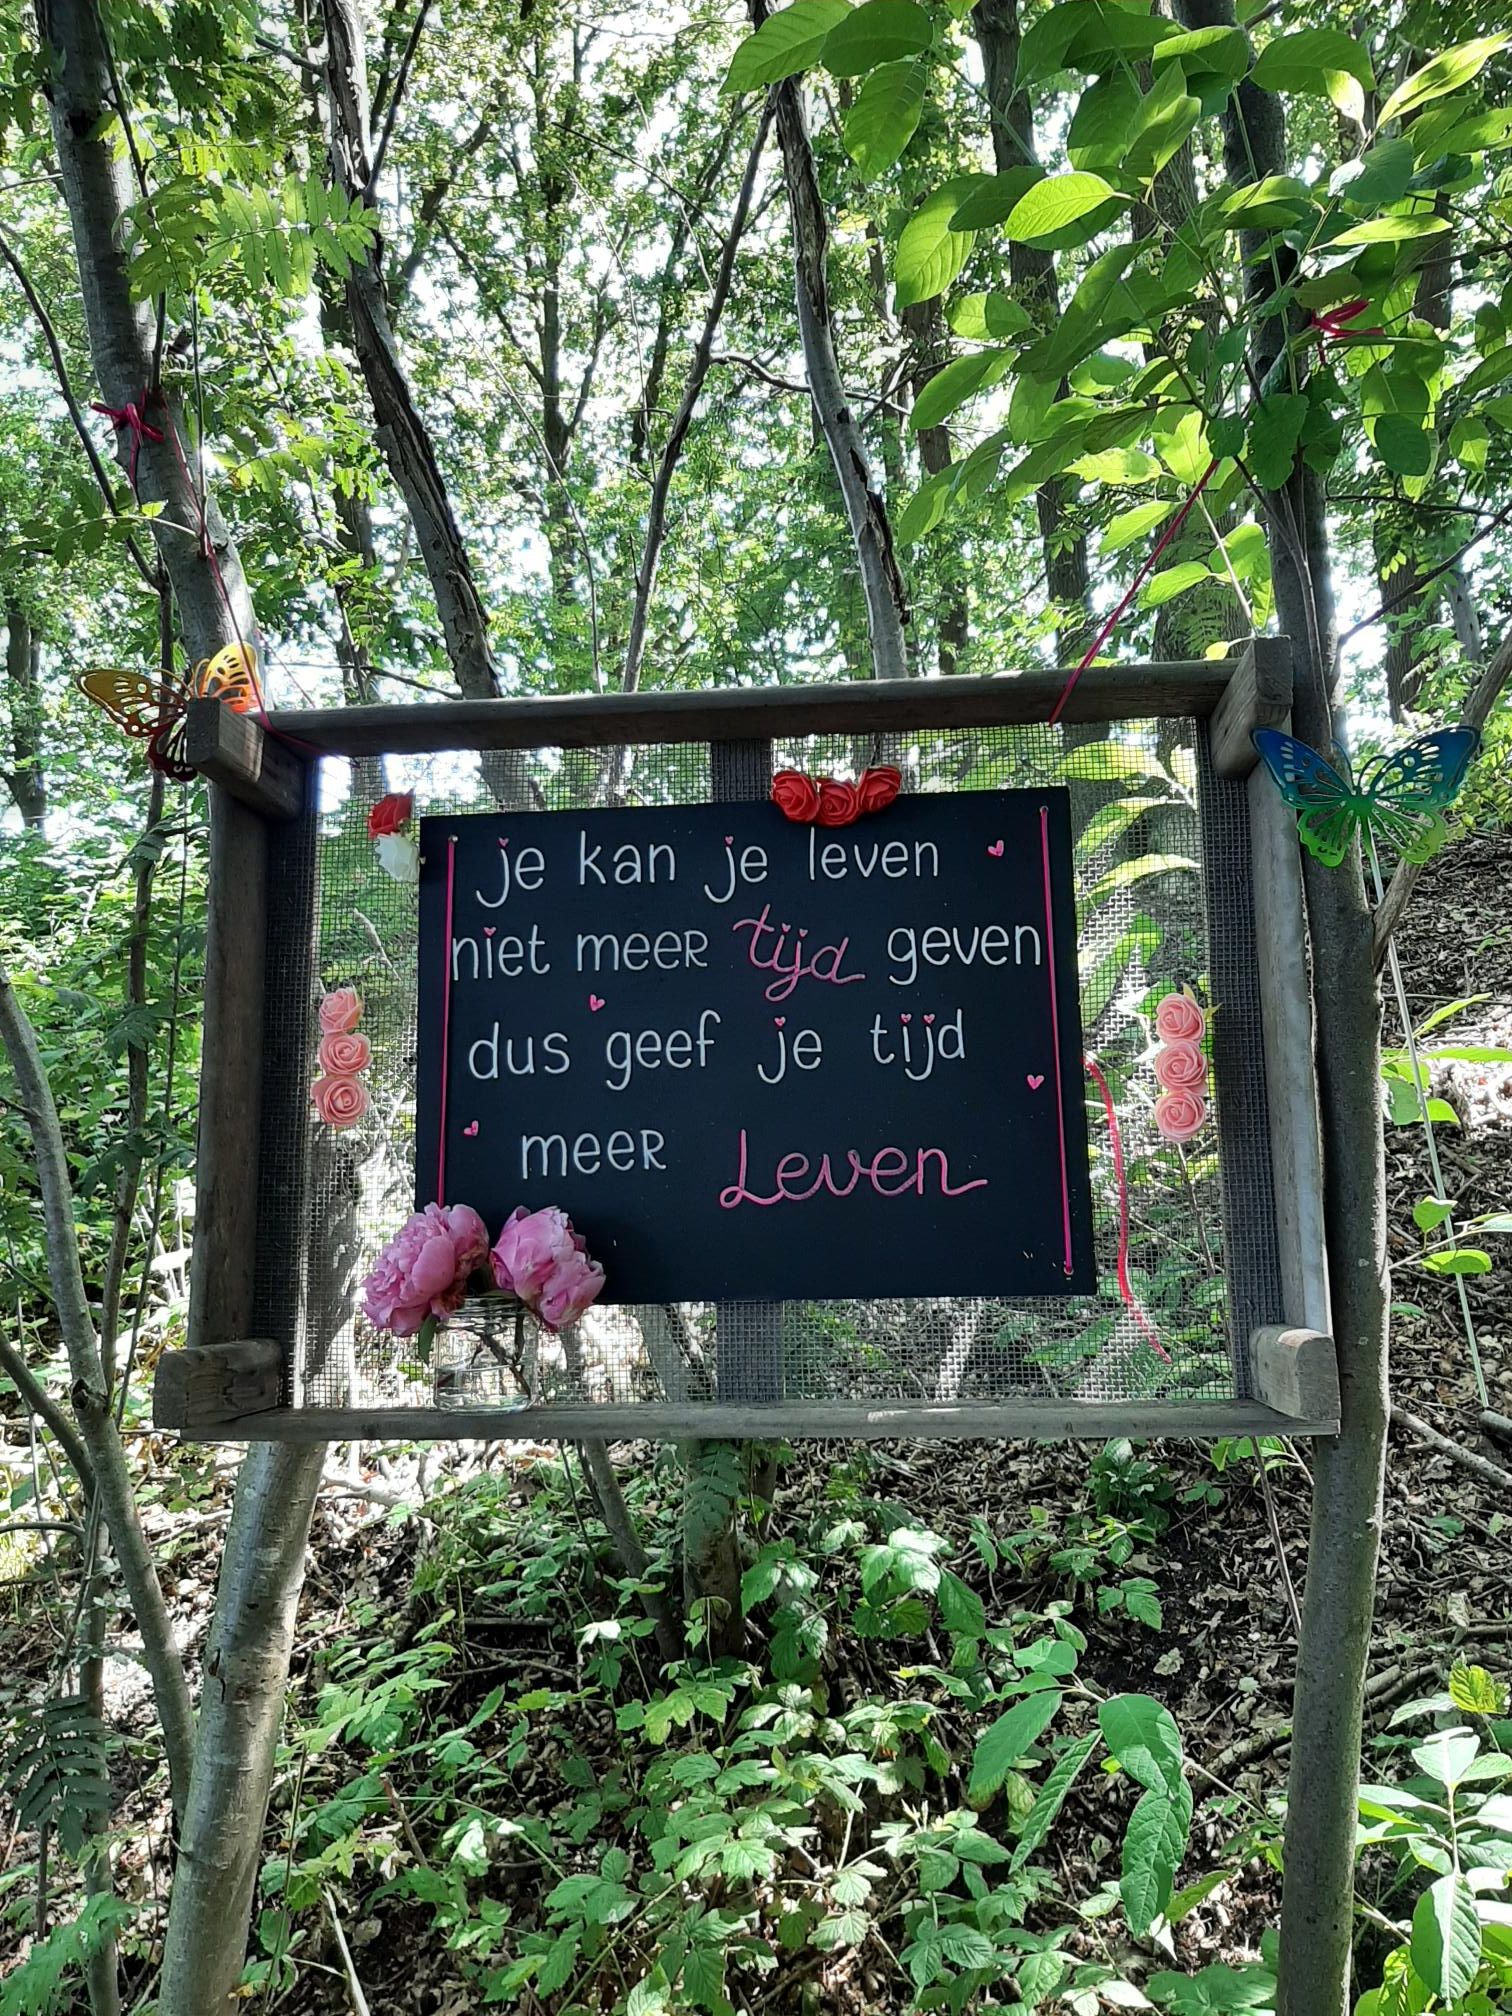 je kan je leven
niet meer tijd geven
dus geef je tijd
meer Leven